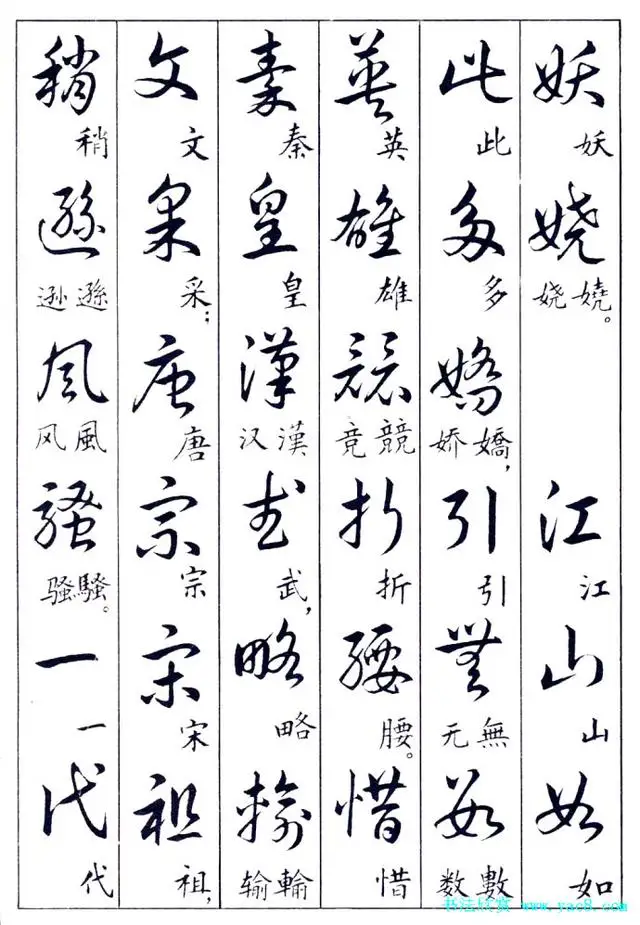 妖嬈江山如
妖 娆嬈。 江 山 如
此多嬌引無數
此 多 娇嬌， 引 无無 数數
英雄競折腰惜
英 雄 竞競 折 腰。 惜
秦皇漢武略輸
秦 皇 汉漢 武， 略 输輸
文采唐宗宋祖
文 采； 唐 宗 宋 祖，
稍遜風騷一代
稍 逊遜 风風 骚騷。 一 代
书法欣赏 www.yac8.com